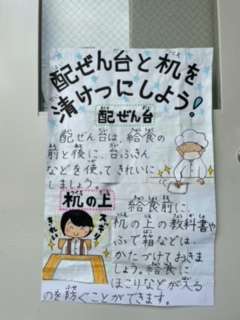 配ぜん台と机を
清けつにしよう!
配ぜん台
配ぜん台は、給食の
前と後に、台ふきん
などを使ってきれいに
しましょう。
机の上
スッキリ
きれい
給食前に
机の上の教科書や
ふで箱などは
かたづけておきま
しょう。給食に
ほこりなどが入る
のを防ぐことができます。